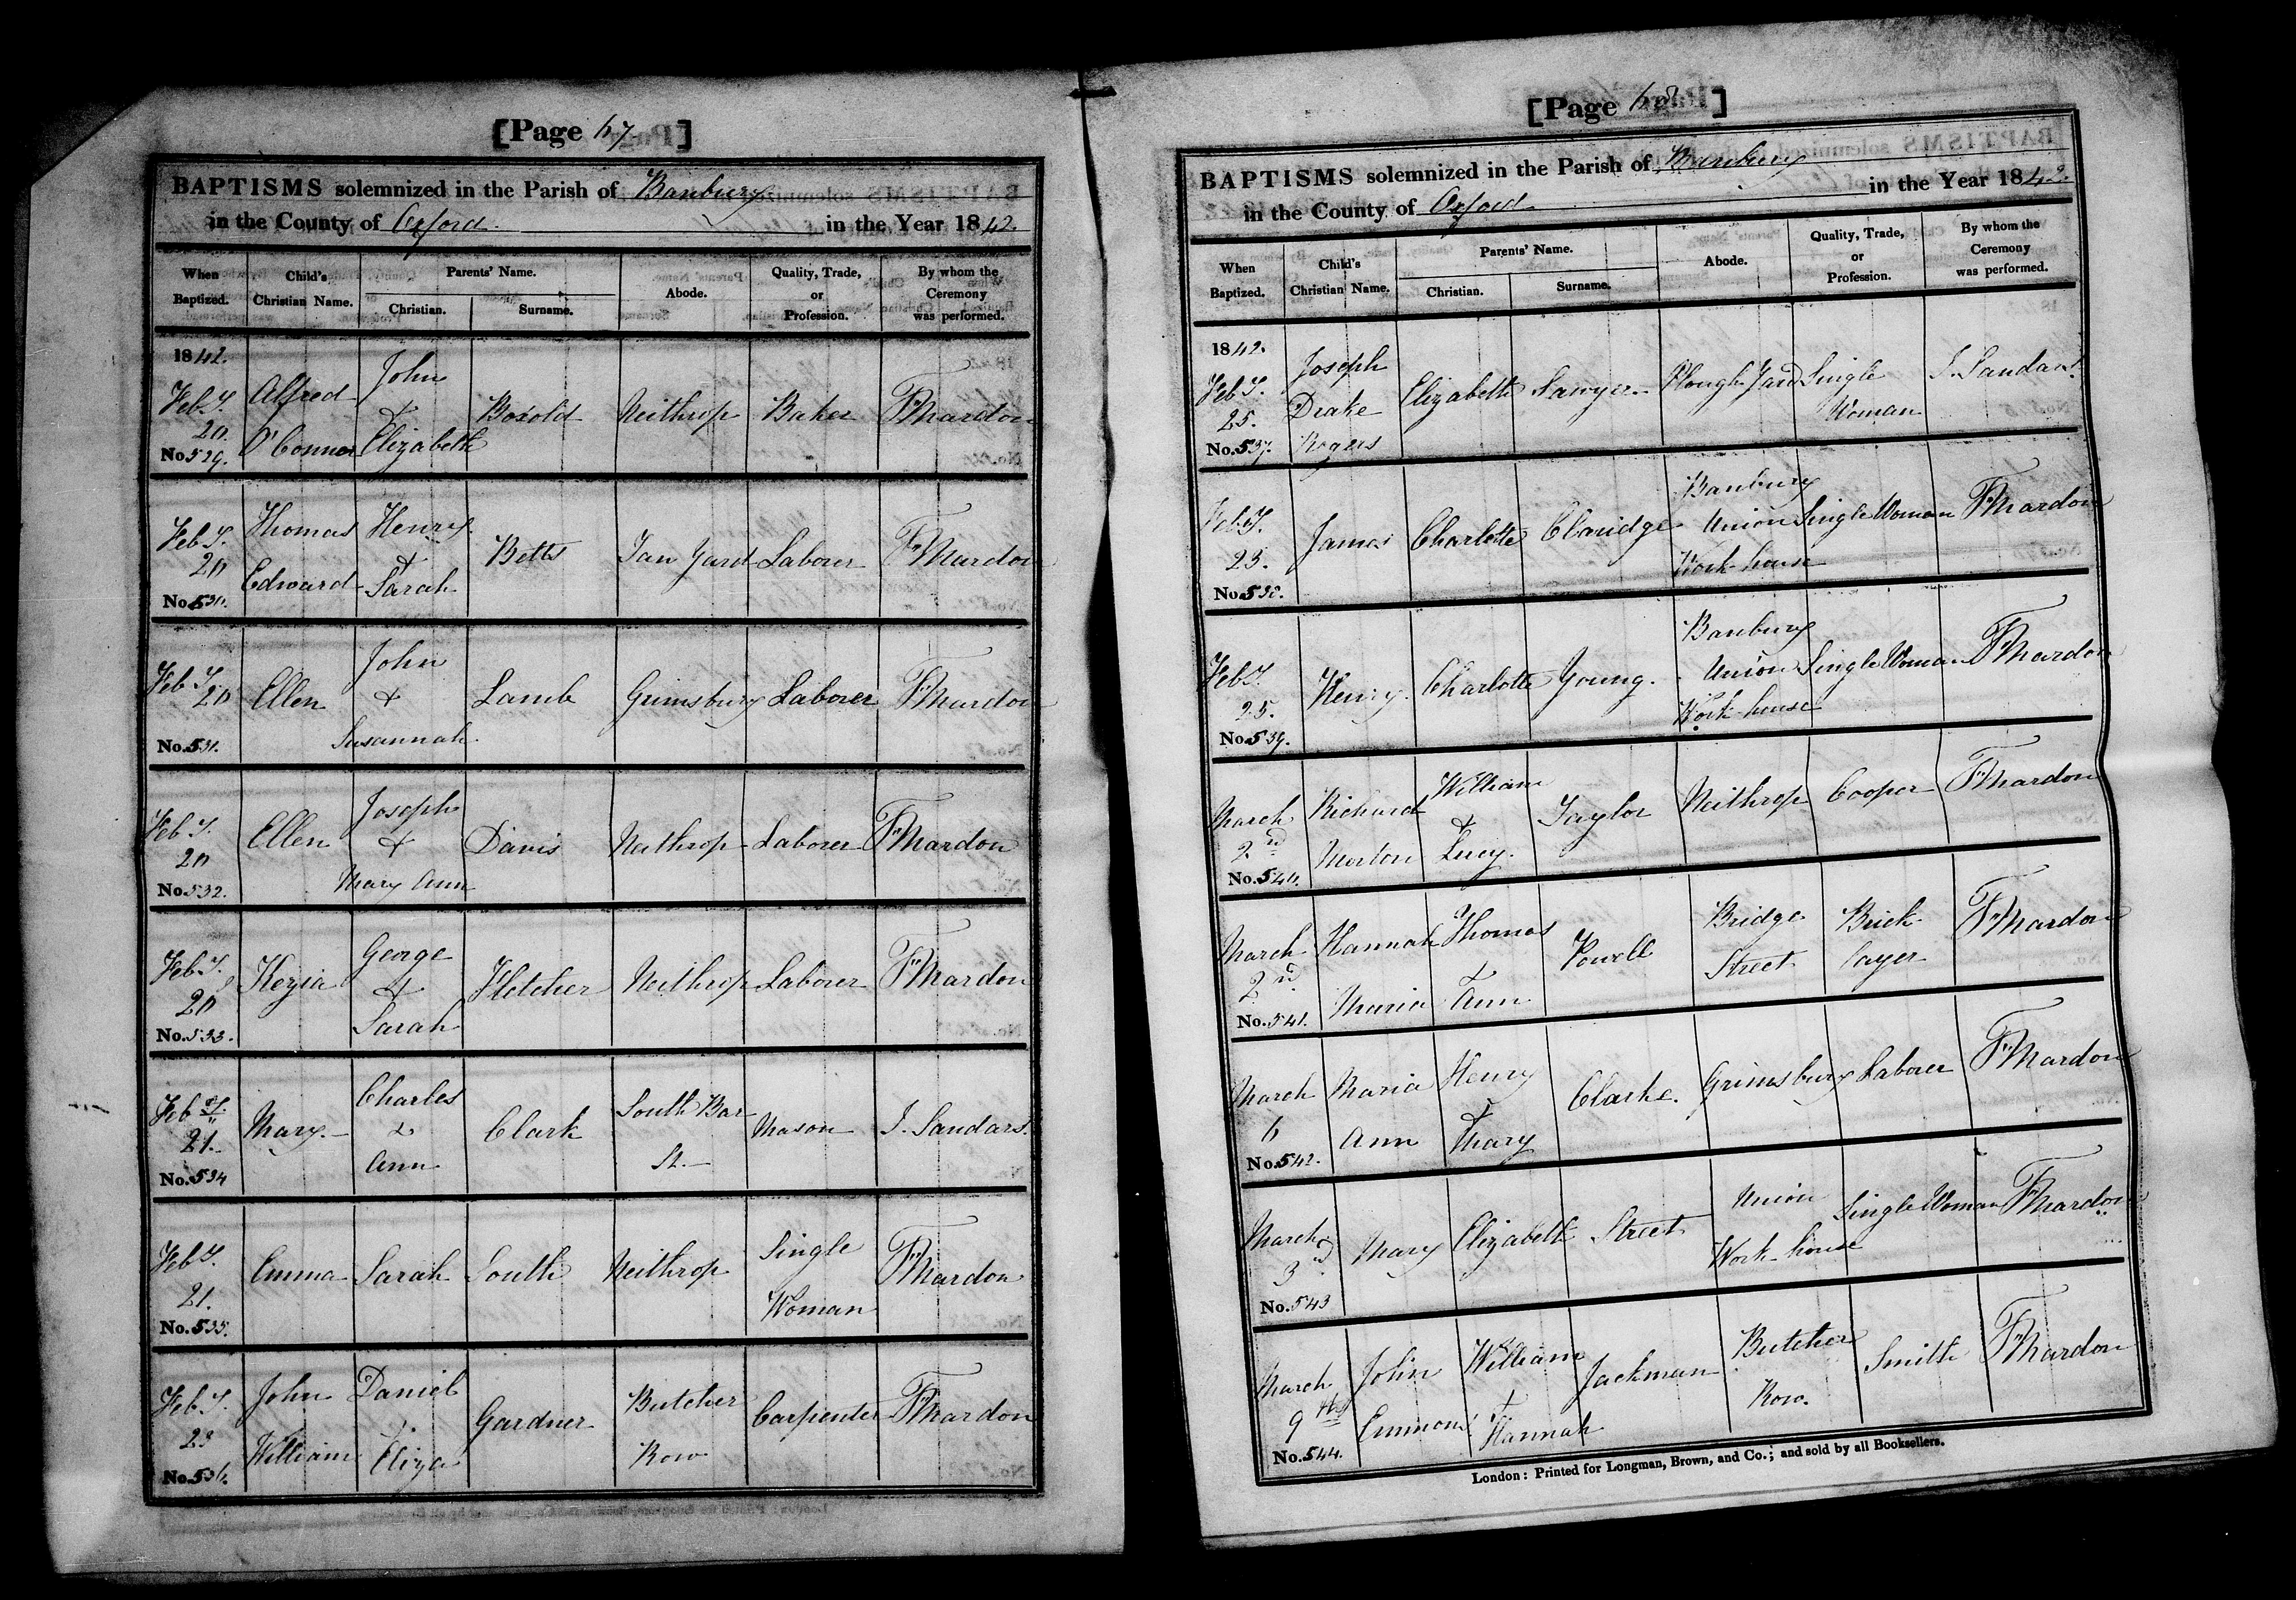 [Page 67]
BAPTISMS solemnized in the Parish of Banbury
in the County of Oxford in the Year 1842.
When Baptized. Child's Christian Name. Parents' Name. Christian. Surname. Abode. Quality, Trade, or Profession. By whom the Ceremony was performed.
1842. Feby. 20. No. 529. Alfred O'Connor John & Elizabeth Neithrop Baker Mardon
Feby. 20 No. 530. Thomas Edward Henry & Sarah Betts Tan Yard Laborer Mardon
Feby 20 No. 531. Ellen John & Susannah Lamb Grimsbury Laborer Mardon
Feby. 20 No. 532. Ellen Joseph & Mary Ann Davis Neithrop Laborer Mardon
Feby. 20 No. 533. Kezia George & Sarah Fletcher Neithrop Laborer Mardon
Feby. 21. No. 534 Mary. Charles & Ann Clark South Bar St. Mason J. Sandars.
Feby. 21. No. 535. Emma Sarah South Neithrop Single Woman Mardon
Feby. 23 No. 536. John William Daniel & Eliza Gardner Butcher Row Carpenter Mardon
[Page 68]
BAPTISMS solemnized in the Parish of Banbury
in the County of Oxford in the Year 1842.
When Baptized. Child's Christian Name. Parents' Name. Christian. Surname. Abode. Quality, Trade, or Profession. By whom the Ceremony was performed.
1842. Feby. 25. No. 537. Joseph Drake Rogers Elizabeth Sawyer Plough Yard Single Woman J. Sandars.
Feby. 25. No. 538. James Charlotte Claridge Banbury Union Work-house Single Woman Mardon
Feby. 25. No. 539. Henry. Charlotte Young. Banbury Union Work-house Single Woman Mardon
March 2nd No. 540. Richard Morton William & Lucy. Taylor Neithrop Cooper Mardon
March 2nd No. 541. Hannah Maria Thomas & Ann Powell Bridge Street Brick layer Mardon
March 6 No. 542. Maria Ann Henry & Mary Clarke. Grimsbury Laborer Mardon
March 3rd No. 543 Mary Elizabeth Street Union Work-house Single Woman Mardon
March 9th No. 544. John William & Hannah Jackman Butcher Row. Smith Mardon
London: Printed for Longman, Brown, and Co.; and sold by all Booksellers.